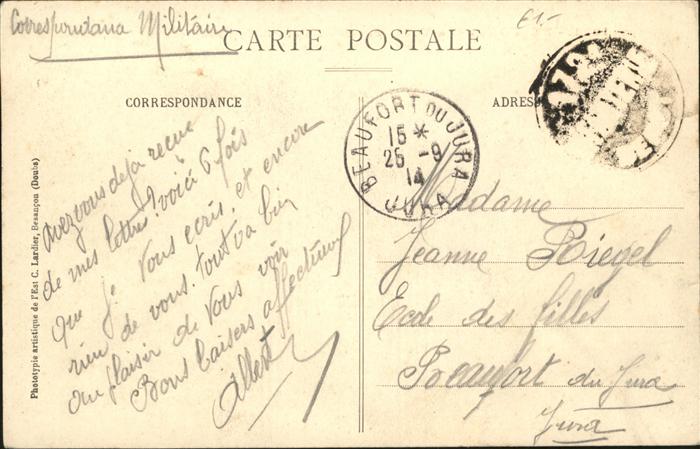 Correspondance Militaire
€1.-
CARTE POSTALE
CORRESPONDANCE
ADRES
BEAUFORT DU JURA
15 *
25 -9
14
JURA
Avez vous deja recue
de mes lettres? voici 6 fois
que je vous ecris, et encore
rien de vous. tout va bien
au plaisir de vous voir
Bons baisers affectueux
Albert
Madame
Jeanne Riegel
Ecole des filles
Beaufort du Jura
Jura
Phototypie artistique de l'Est C. Lardier, Besançon (Doubs)